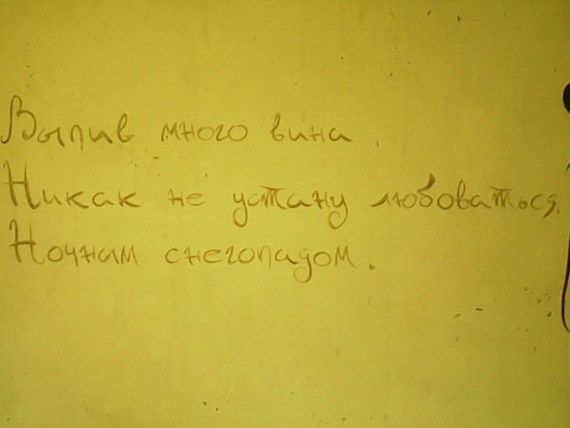 Выпив много вина.
Никак не устану любоваться.
Ночным снегопадом.